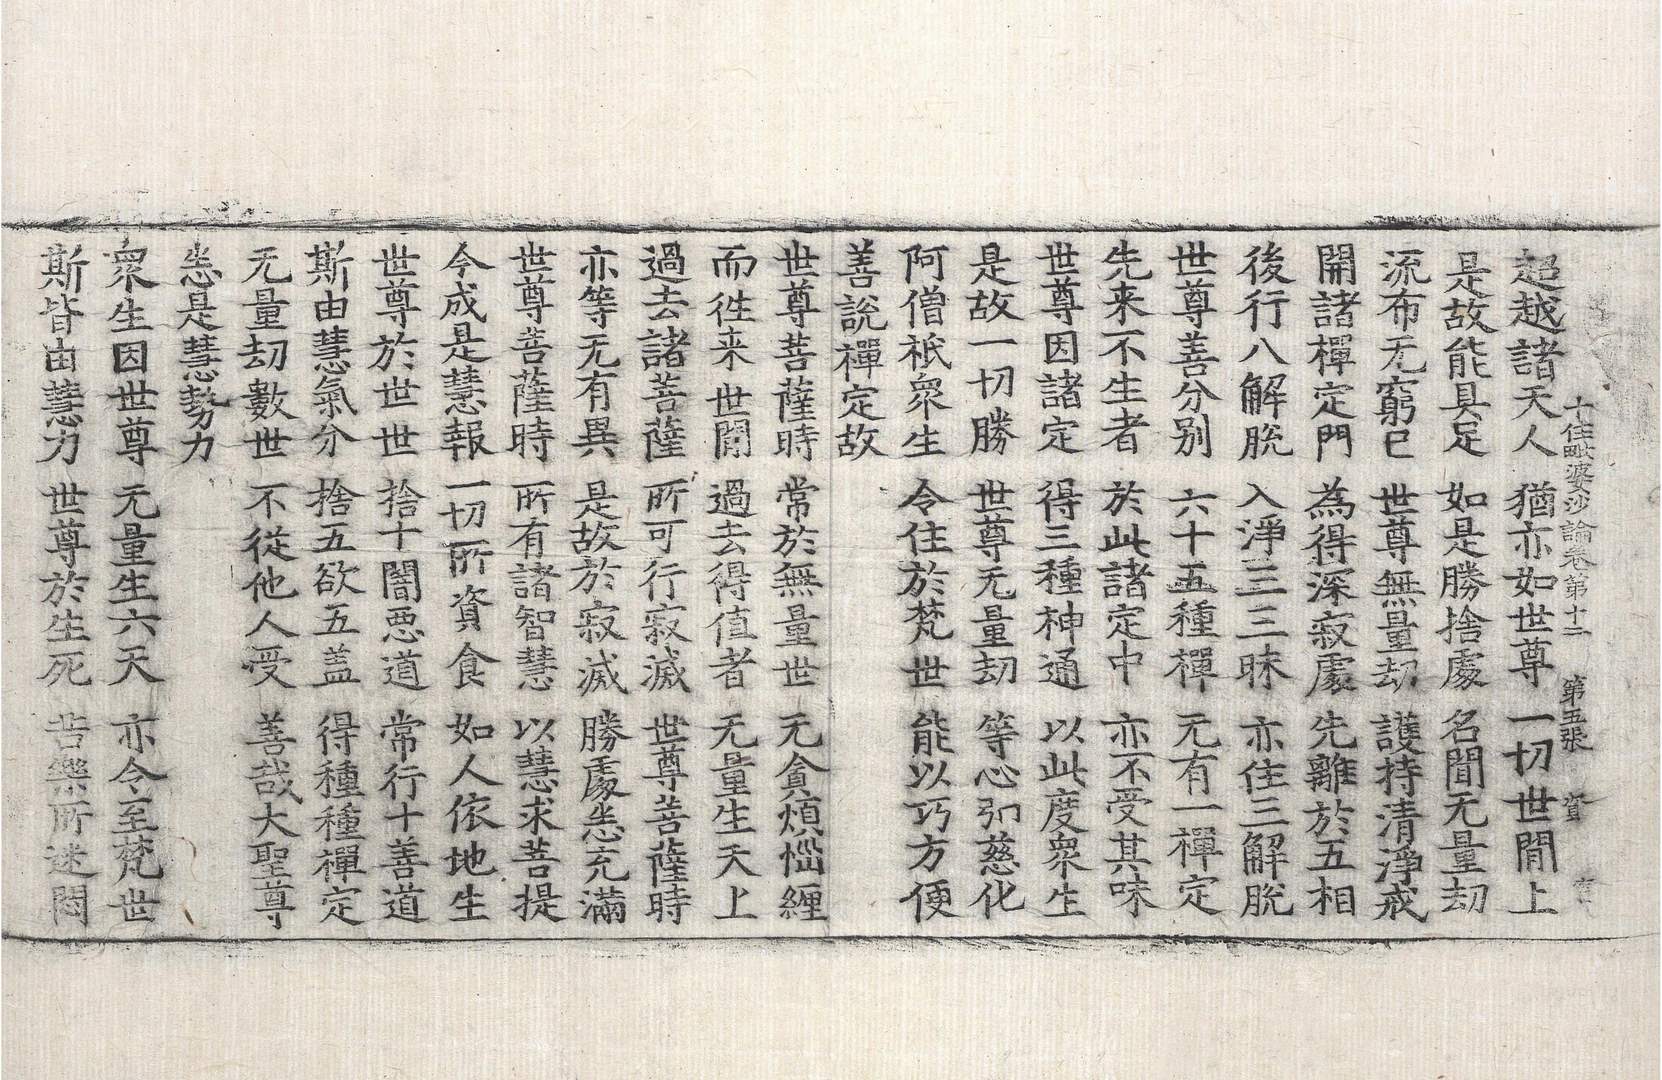 十住毗婆沙論卷第十二 第五張 資
超越諸天人 猶亦如世尊 一切世間上
是故能具足 如是勝捨處 名聞无量劫
流布无窮已 世尊無量劫 護持清淨戒
開諸禪定門 為得深寂處 先離於五相
後行八解脫 入淨三三昧 亦住三解脫
世尊善分別 六十五種禪 无有一禪定
先来不生者 於此諸定中 亦不受其味
世尊因諸定 得三種神通 以此度衆生
是故一切勝 世尊无量劫 等心弘慈化
阿僧祇衆生 令住於梵世 能以巧方便
善說禪定故
世尊菩薩時 常於無量世 无貪煩惱纏
而徃来世間 過去得值者 无量生天上
過去諸菩薩 所可行寂滅 世尊菩薩時
亦等无有異 是故於寂滅 勝處悉充滿
世尊菩薩時 所有諸智慧 以慧求菩提
今成是慧報 一切所資食 如人依地生
世尊於世世 捨十闇惡道 常行十善道
斯由慧氣分 捨五欲五盖 得種種禪定
无量劫數世 不從他人受 善哉大聖尊
悉是慧勢力
衆生因世尊 无量生六天 亦令至梵世
斯皆由慧力 世尊於生死 苦樂所迷悶